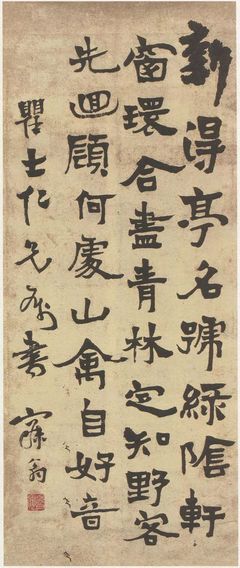 新得亭名號綠陰軒
窗環合盡青林定知野客
先迴顧何處山禽自好音
瞿士仁兄属書 寐翁